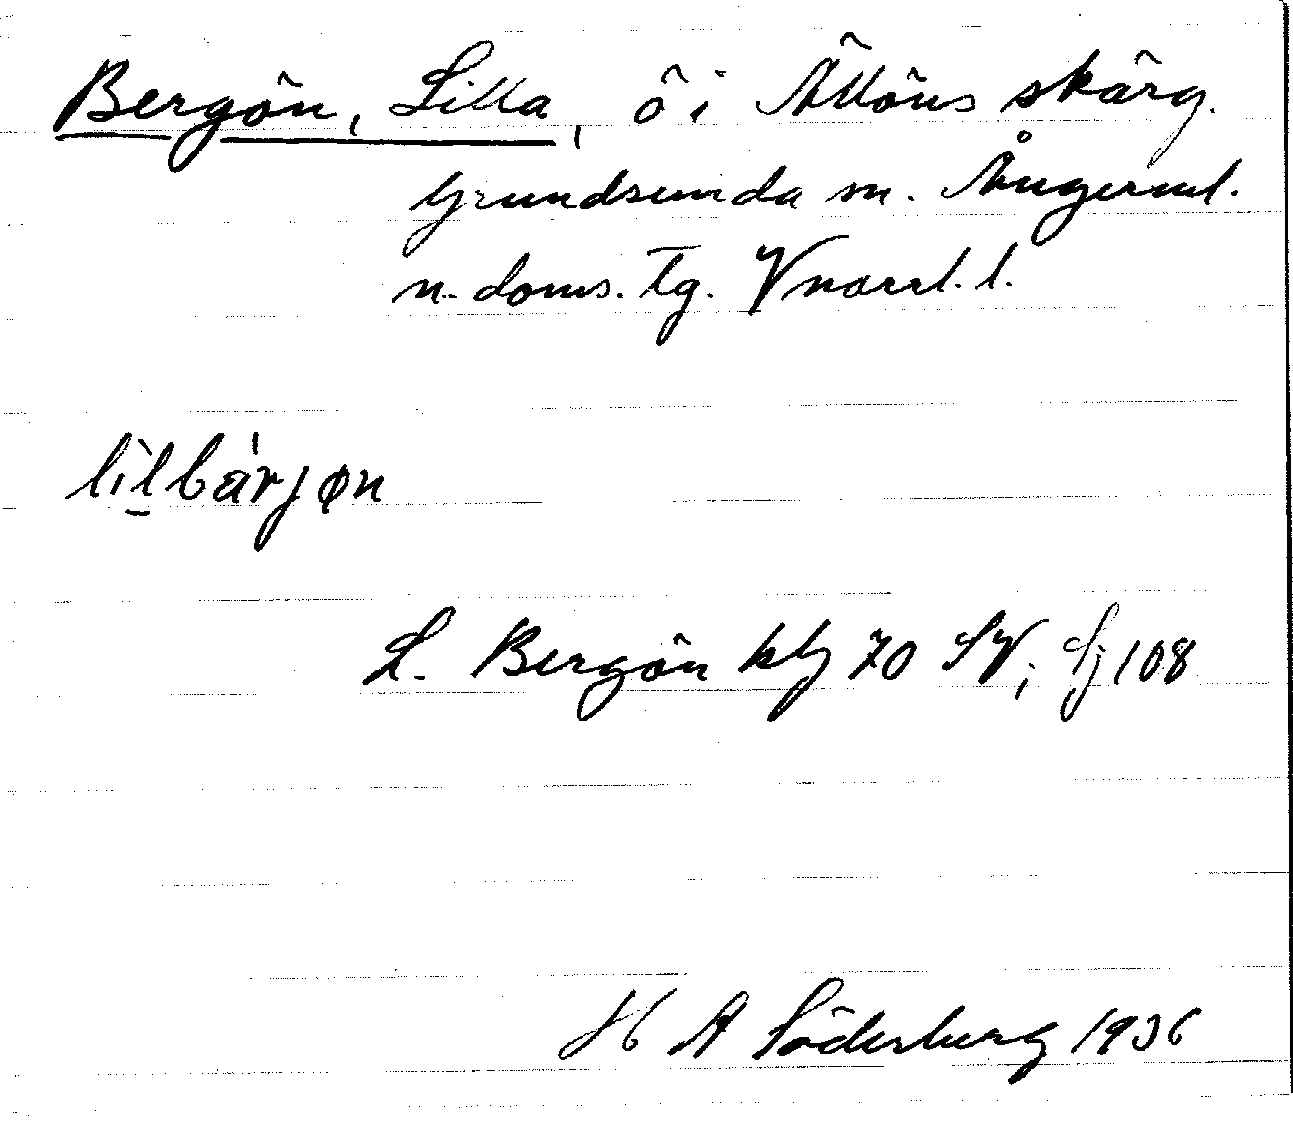 Bergön, Lilla, ö i Ällöns skärg.
Grundsunda sn. Ångerml.
n. doms. Tg. Vnorrl. l.
lìlbárjøn
L. Bergön kbl 70 SV; Sj 108
H A Söderberg 1936